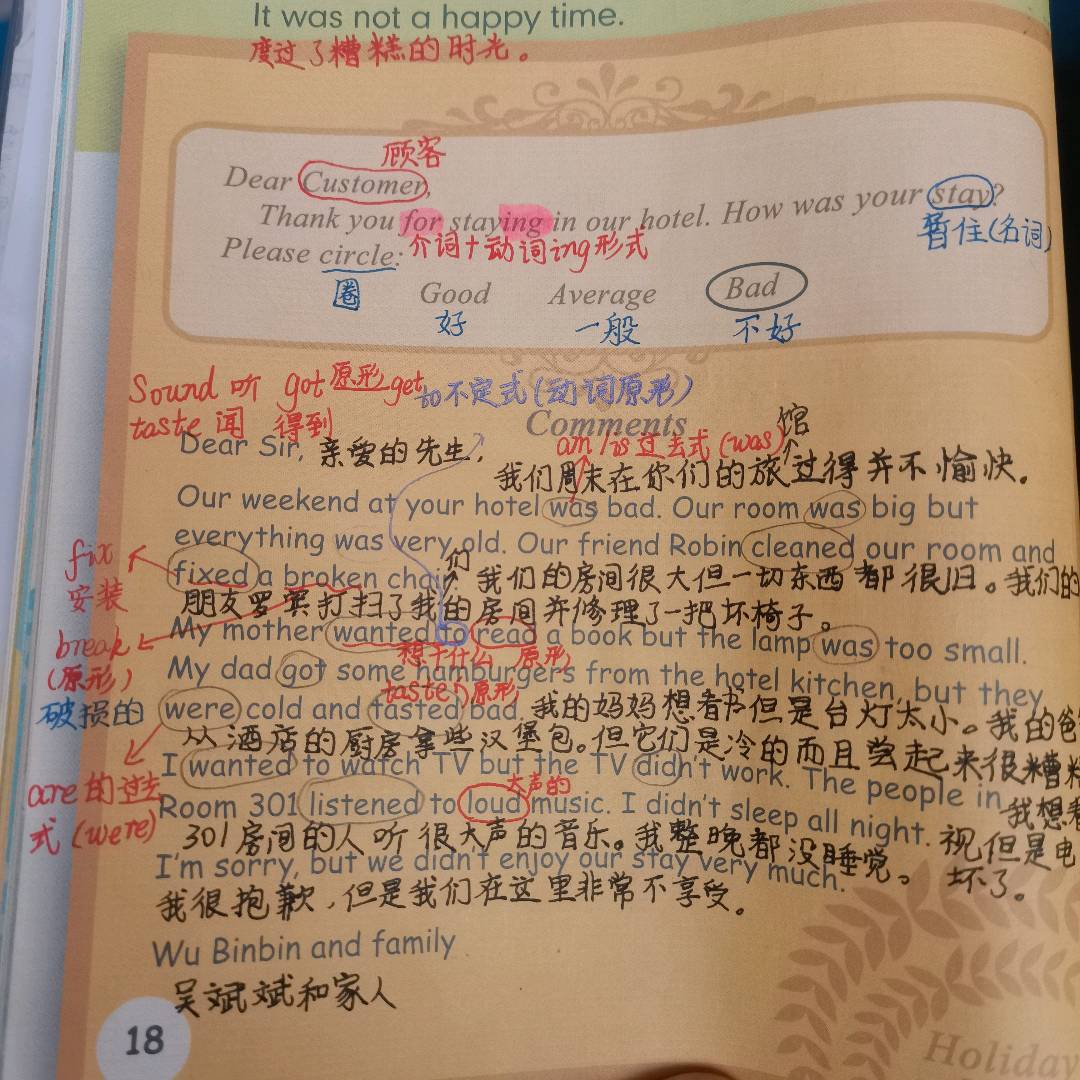 It was not a happy time.
度过了糟糕的时光。
顾客
Dear Customer,
Thank you for staying in our hotel. How was your stay?
暂住(名词)
Please circle: 介词+动词ing形式
圈 Good Average Bad
好 一般 不好
Sound 听 got 原形 get to不定式(动词原形)
taste 闻 得到
Comments
馆
am/is过去式(was)
Dear Sir, 亲爱的先生,
我们周末在你们的旅过得并不愉快。
Our weekend at your hotel was bad. Our room was big but
everything was very old. Our friend Robin cleaned our room and
fix
安装
们
fixed a broken chair. 我们的房间很大但一切东西都很旧。我们的
朋友罗宾打扫了我的房间并修理了一把坏椅子。
My mother wanted to read a book but the lamp was too small.
break
(原形)
破损的
想十什么 原形
My dad got some hamburgers from the hotel kitchen, but they
taste的原形
were cold and tasted bad. 我的妈妈想看书但是台灯太小。我的爸
从酒店的厨房拿些汉堡包。但它们是冷的而且尝起来很糟糕
I wanted to watch TV but the TV didn't work. The people in
are的过去
式(were)
大声的
Room 301 listened to loud music. I didn't sleep all night. 我想看
301房间的人听很大声的音乐。我整晚都没睡觉。视但是电
I'm sorry, but we didn't enjoy our stay very much. 坏了。
我很抱歉,但是我们在这里非常不享受。
Wu Binbin and family
吴斌斌和家人
18
Holiday